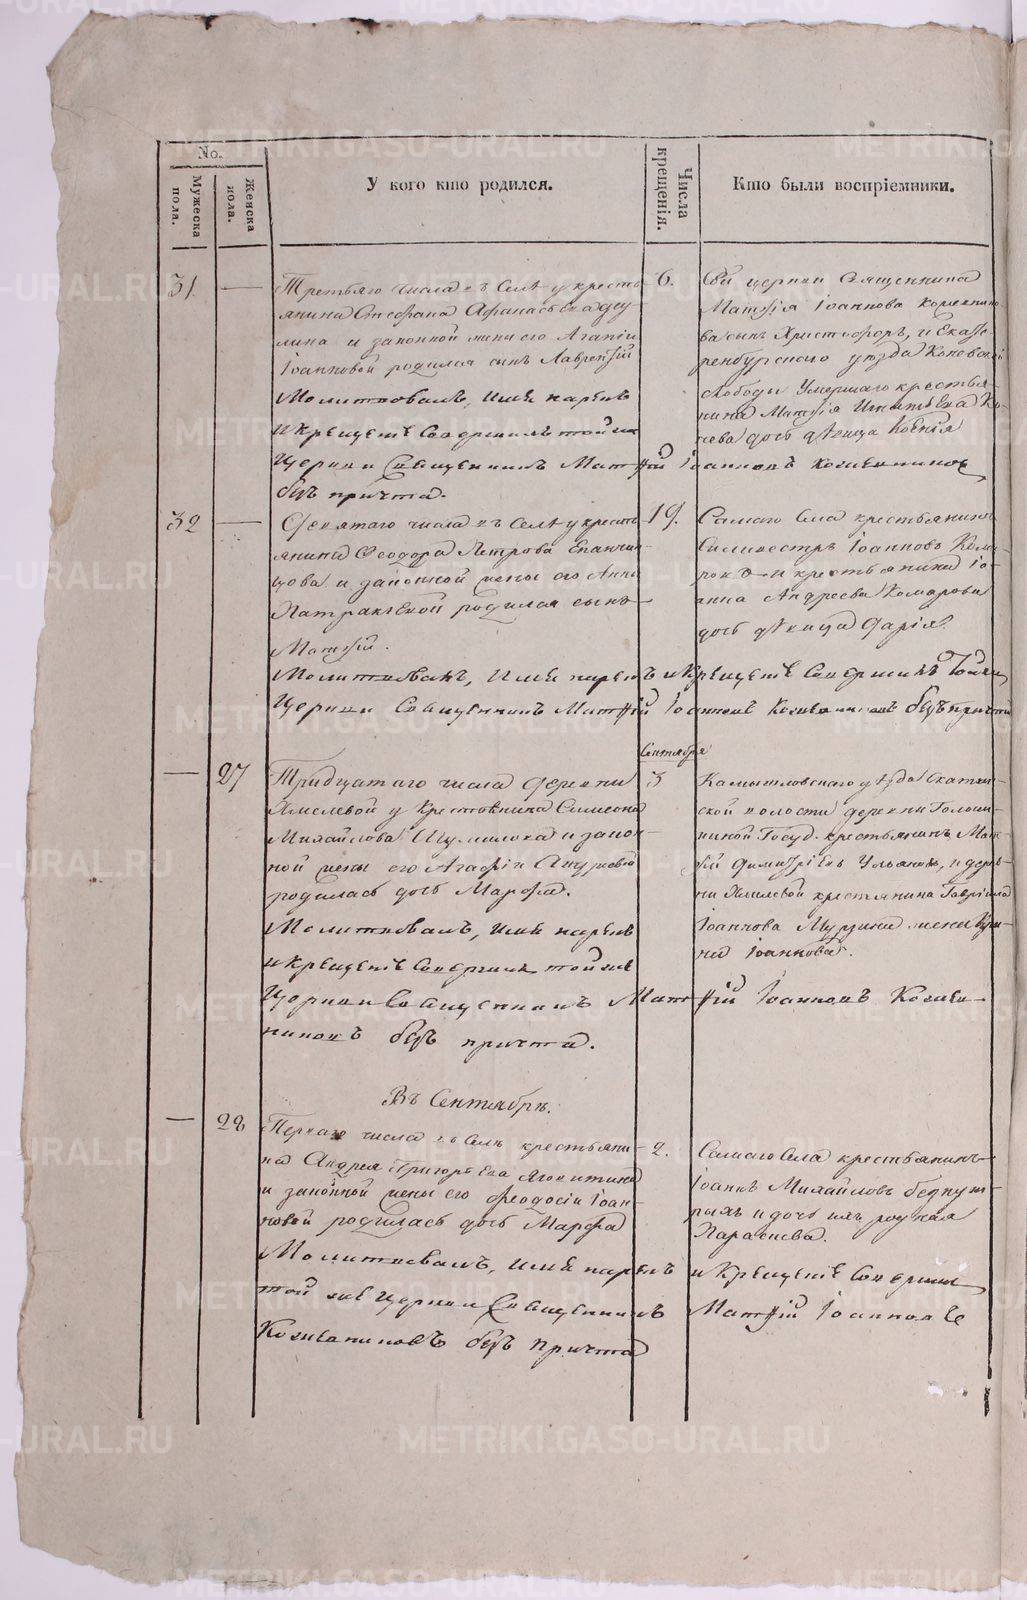 No.
Мужеска пола.
Женска пола.
У кого кто родился.
Числа крещенія.
Кто были воспріемники.
31. —
Третьяго числа въ Селѣ у кресть-
янина Стефана Афанасьева
и законной жены его Агапіи
Іоанновой родился сынъ Лаврентій
Молитвовалъ, имя нарекъ
и крещеніе Совершилъ той же
Церкви Священникъ Матѳій Іоанновъ Кожевниковъ
безъ причта.
6.
Сей церкви Священника
Матѳія Іоаннова Кожевнико-
ва сынъ Христофоръ, и Екате-
ренбурскаго уѣзда
слободы Умершаго крестья-
нина Матѳія Игнатьева Ко-
нева дочь дѣвица Ксенія
32 —
Девятаго числа въ Селѣ у кресть-
янина Ѳеодора Петрова Епанчин-
цова и законной жены его Анны
Патракѣевой родился сынъ
Матѳій.
Молитвовалъ, имя нарекъ и Крещеніе Совершилъ Тойже
Церкви Священникъ Матѳій Іоанновъ Кожевниковъ безъ причта
19.
Самаго Села крестьянинъ
Силивестръ Іоанновъ
и крестьянина Іо-
анна Андреева Комарова
дочь дѣвица Дарія.
— 27
Тридцатаго числа деревни
Хмелевой у Крестьянина Симеона
Михайлова и закон-
ной жены его Агафіи
родилась дочь Марфа.
Молитвовалъ, имя нарекъ
и крещеніе Совершилъ той же
Церкви Священникъ Матѳій Іоанновъ Кожев-
никовъ безъ причта.
Сентября
3
Камышловскаго уѣзда Скатин-
ской волости деревни
Госуд. крестьянинъ Мат-
ѳій Димитріевъ Ульяновъ, и дерев-
ни Хмелевой крестьянина Гавріила
Іоаннова Мурзина жена Ири-
на Іоаннова.
Въ Сентябрѣ.
— 28
Перваго числа въ Селѣ крестьяни-
на Андрея Григорьева
и законной жены его Ѳеодосіи Іоан-
новой родилась дочь Марфа
Молитвовалъ, имя нарекъ и Крещеніе Совершилъ
той же Церкви Священникъ Матѳій Іоанновъ
Кожевниковъ безъ причта
2.
Самаго Села крестьянинъ
Іоаннъ Михайловъ
и дочь ихъ родная
Параскева.
METRIKI.GASO-URAL.RU